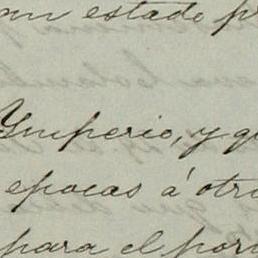 estado
Ymperio, y
epocas á otr
para el por